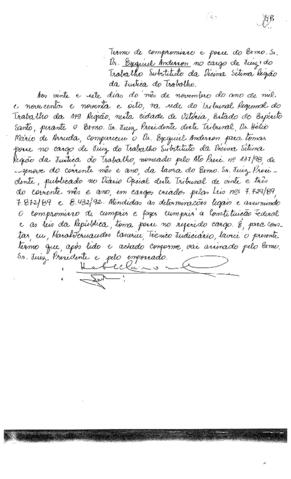 Termo de compromisso e posse do Exmo. Sr.
Dr. Ezequiel Anderson no cargo de Juiz do
Trabalho Substituto da Décima Sétima Região
da Justiça do Trabalho.
Aos vinte e sete dias do mês de novembro do ano de mil
e novecentos e noventa e oito, na sede do Tribunal Regional do
Trabalho da 17ª Região, nesta cidade de Vitória, Estado do Espírito
Santo, perante o Exmo. Sr. Juiz Presidente deste Tribunal, Dr. Hélio
Mário de Arruda, compareceu o Dr. Ezequiel Anderson para tomar
posse no cargo de Juiz do Trabalho Substituto da Décima Sétima
Região da Justiça do Trabalho, nomeado pelo Ato Presi nº
do corrente mês e ano, da lavra do Exmo. Sr. Juiz Presi-
dente, publicado no Diário Oficial deste Tribunal de vinte e três
do corrente mês e ano, em cargos criados pelas Leis nºs 7.729/89,
7.872/89 e 8.432/92. Atendidas as determinações legais e assumindo
o compromisso de cumprir e fazer cumprir a Constituição Federal
e as leis da República, toma posse no referido cargo. E, para cons-
tar, eu, Técnico Judiciário, lavrei o presente
termo que, após lido e achado conforme, vai assinado pelo Exmo.
Sr. Juiz Presidente e pelo empossado.